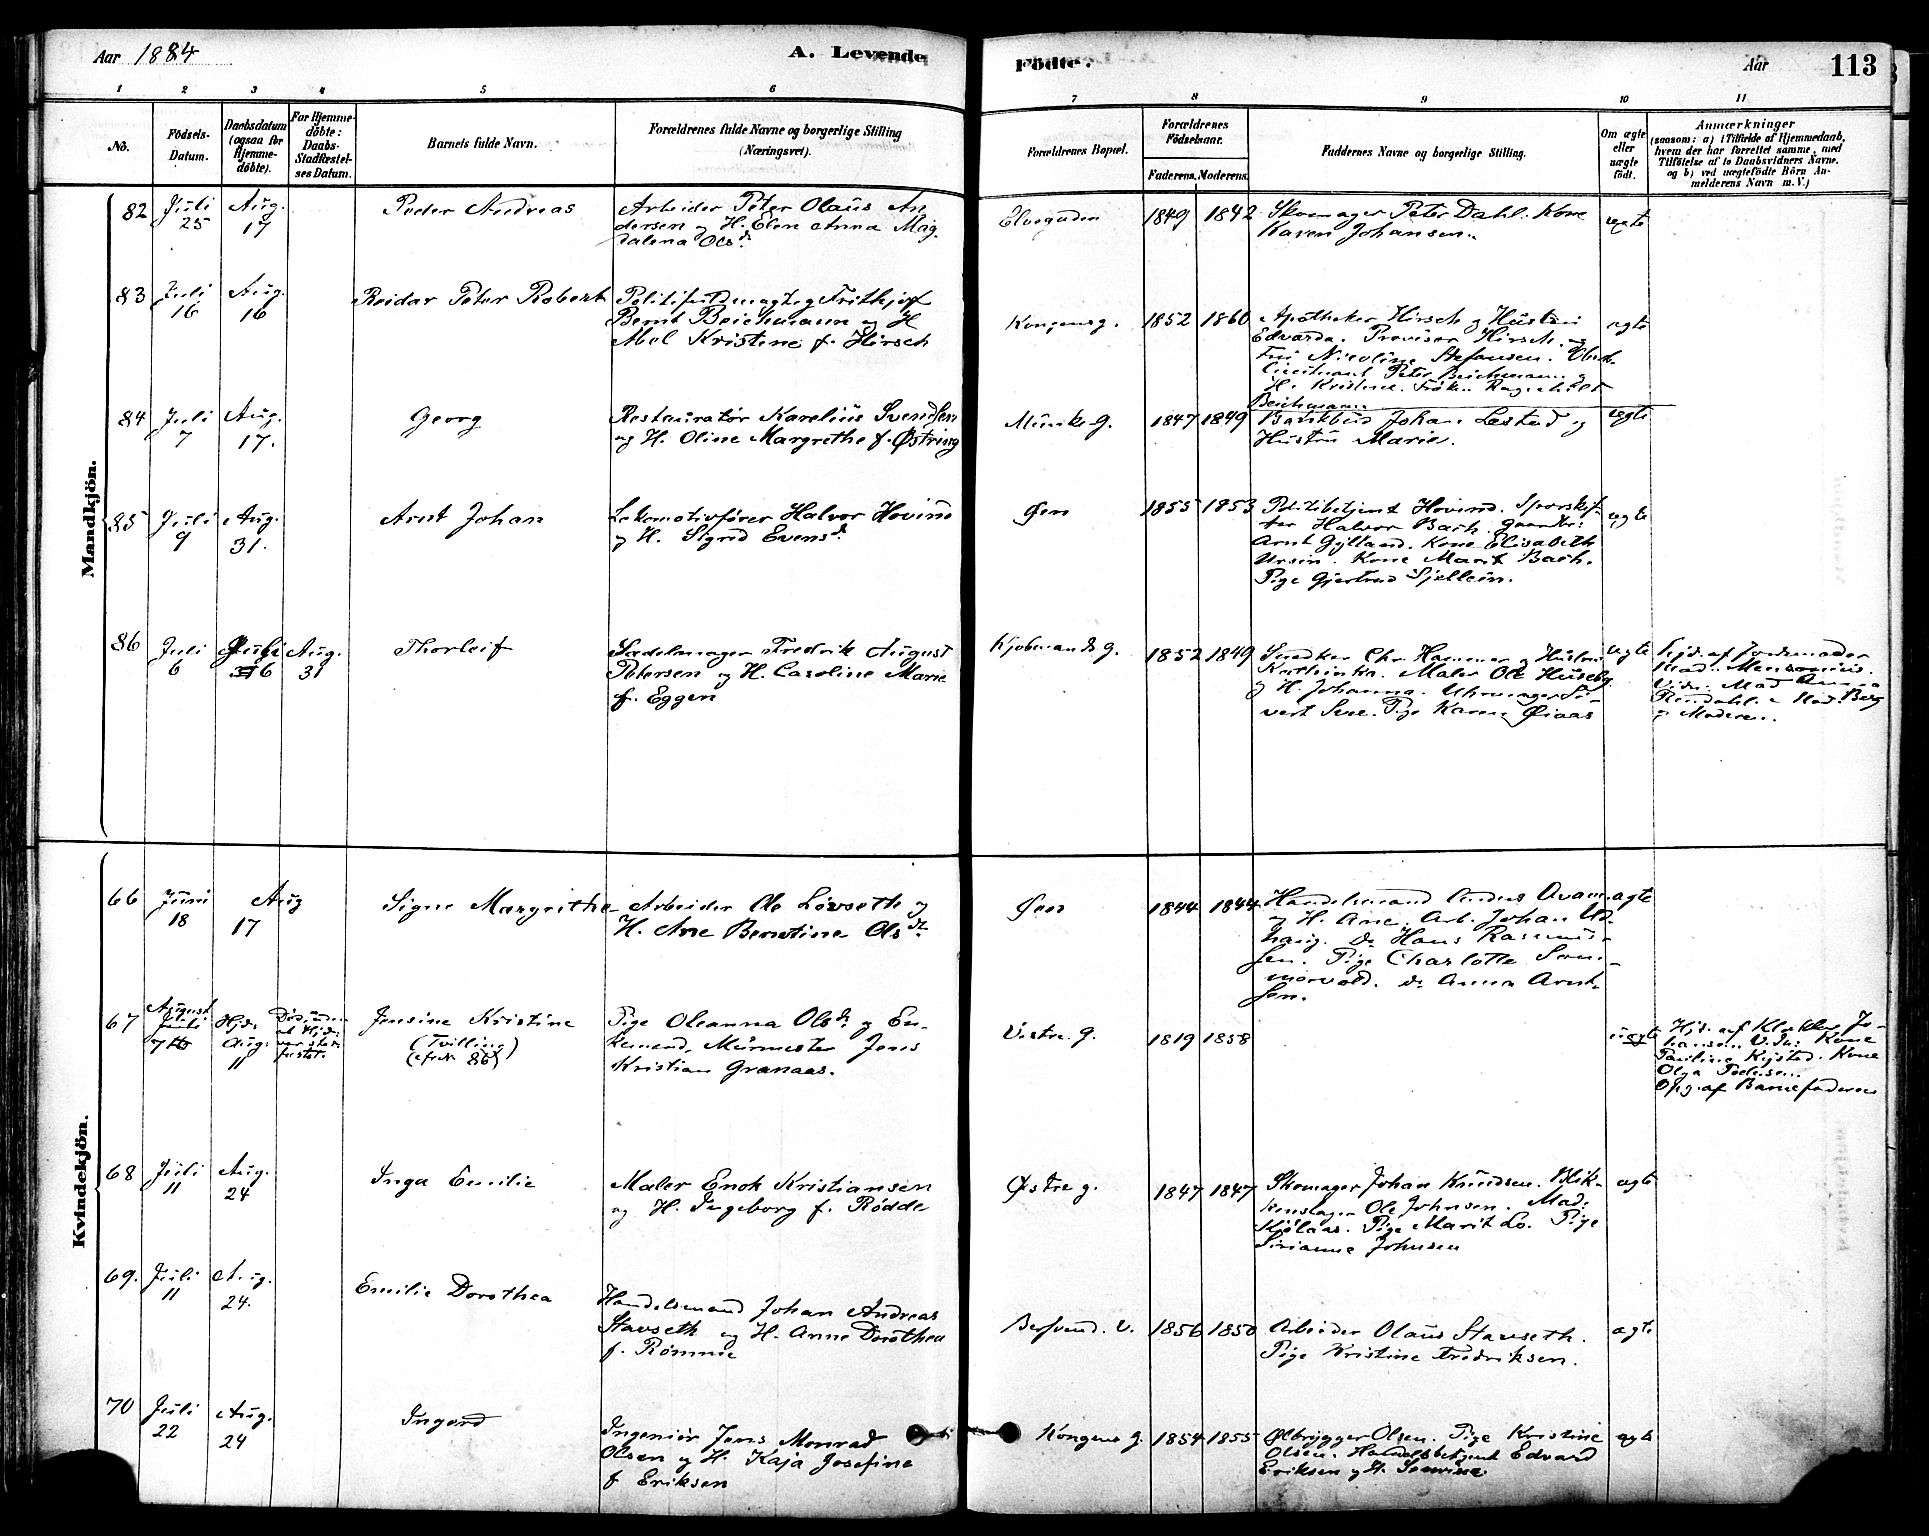 Aar 1884
A. Levende
Födte.
Aar
113
1 2 3 4 5 6 7 8 9 10 11
No.
Födsels-
Datum.
Daabsdatum
(ogsaa for
Hjemme-
döbte).
For Hjemme-
döbte:
Daabs-
Stadfæstel-
ses Datum.
Barnets fulde Navn.
Forældrenes fulde Navne og borgerlige Stilling
(Næringsvei).
Forældrenes Bopæl.
Forældrenes
Födselsaar.
Faderens. Moderens.
Faddernes Navne og borgerlige Stilling.
Om ægte
eller
uægte
födt.
Anmærkninger
(saasom: a) i Tilfælde af Hjemmedaab,
hvem der har forrettet samme, med
Tilföielse af to Daabsvidners Navne,
og b) ved uægtefödte Börn An-
melderens Navn m. V.)
Mandkjön.
82
Juli
25
Aug.
17
Peder Andreas
Arbeider Peter Olaus An
dersen og H. Elen Anna Mag
dalena Olsd.
Elvegaden
1849 1842
Skomager Peter Dahl. Kone
Karen Johansen.
ægte
83
Juli
16
Aug.
16
Reidar Peter Robert
Politifuldmægtig Frithjof
Bernt Beichmann og H
Mol Kristine f. Hirsch
Kongensg.
1852 1860
Apotheker Hirsch og Hustru
Edvarda. Provisor Hirsch og
Fru Nicoline Stefansen.
Peter Beichmann og
H. Kristine. Frøken Ragnhild
Beichmann.
ægte
84
Juli
7
Aug.
17.
Georg
Restauratør Karelius Svendsen
og H. Oline Margrethe f. Østring
Munkeg.
1847 1849
Bankbud Johan Lestad og
Hustru Marie.
ægte
85
Juli
9
Aug.
31.
Arnt Johan
Lokomotivfører Halvor Hovind
og H. Sigrid Evensd.
Øen
1855 1853
Politibetjent Hovind. Sporskif-
ter Halvor Bach. Gaardbr:
Arnt Gylland. Kone Elisabeth
Ursin. Kone Marit Bach.
Pige Gjertrud
ægte
86
Juli
6
Juli
6
Aug.
31
Thorleif
Sadelmager Fredrik August
Petersen og H. Caroline Marie
f. Eggen
Kjøbmandsg.
1852 1849
Snedker Chr. Hammer og Hustru
Kathinka. Maler Ole Huseby
og H. Johanna. Uhrmager Si-
vert Sve. Pige Karen Øiaas
ægte
Hjd. af Jordemoder
Mad.
Vidn. Mad Anna
Rendahl. Mad. Berg
og Moderen.
Kvindekjön.
66
Juni
18
Aug
17
Signe Margrethe
Arbeider Ole Løvseth og
H. Ane Berntine Olsdr.
Øen
1844 1844
Handelsmand Anders Avam
og H. Ane. Arb. Johan Ud-
haug. do Hans Rasmus-
sen. Pige Charlotte Som-
morvold. do Anna Arnt-
sen.
ægte
67
August
7
Hjd.
Aug.
11
Død, uden
at Hjd.
var stad-
fæstet.
Jensine Kristine
(Tvilling)
(cfr. 86)
Pige Oleanna Olsdr. og En-
kemand, Murmester Jens
Kristian Granaas.
Vestre g.
1819 1858
uægte
Hjd. af Klokker Jo-
hansen. Vidn: Kone
Pauline Kystad. Kone
Olga Pedersen.
Opg. af Barnefaderen
68
Juli
11
Aug.
24
Inga Emilie
Maler Enok Kristiansen
og H. Ingeborg f. Rødde
Østre g.
1847 1847
Skomager Johan Knudsen. Blik-
kenslager Ole Johnsen. Mad.
Kjølaas. Pige Marit Lo. Pige
Sirianne Johnsen
ægte
69.
Juli
11
Aug.
24.
Emilie Dorothea
Handelsmand Johan Andreas
Stavseth og H. Anne Dorothea
f. Rømme
1856 1850
Arbeider Olaus Stavseth.
Pige Kristine Fredriksen.
ægte
70
Juli
22
Aug.
24
Ingerd
Ingeniør Jens Monrad
Olsen og H. Kaja Josefine
f Eriksen
Kongens g.
1854 1855
Ølbrygger Olsen. Pige Kristine
Olsen. Handelsbetjent Edvard
Eriksen og H.
ægte